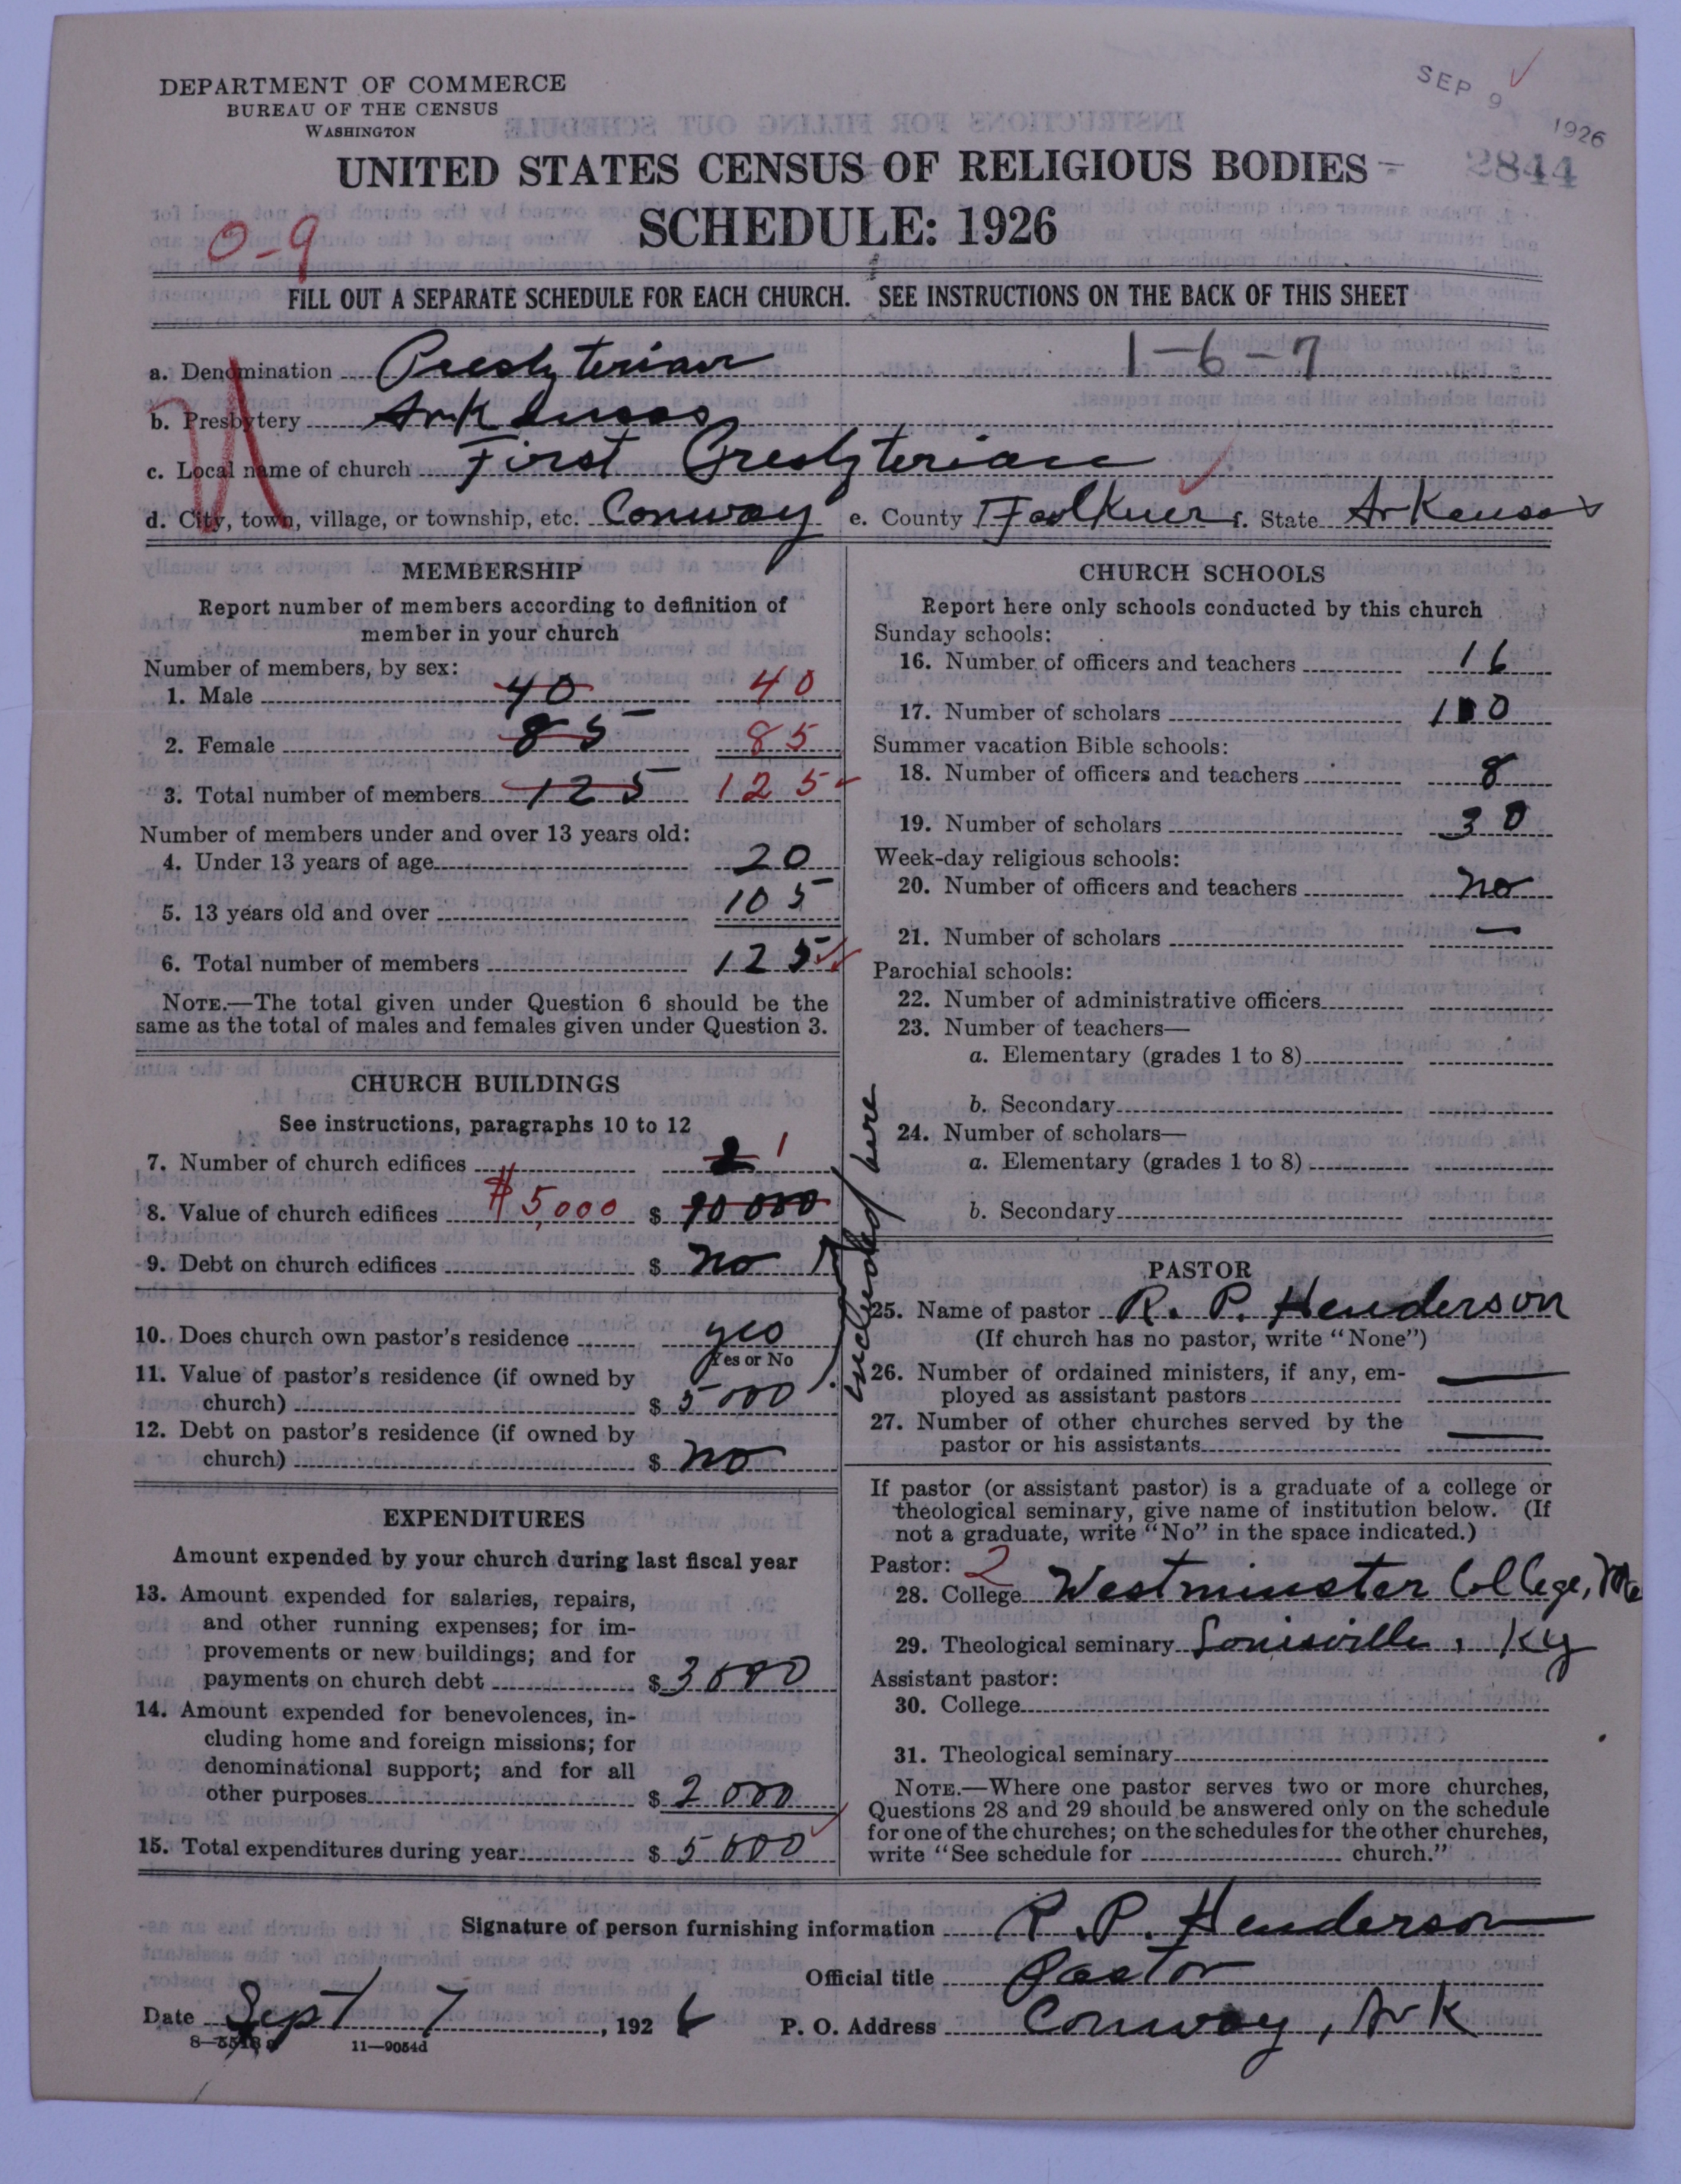 DEPARTMENT OF COMMERCE
BUREAU OF THE CENSUS
WASHINGTON
SEP 9 1926
2844
UNITED STATES CENSUS OF RELIGIOUS BODIES
SCHEDULE: 1926
0-9
FILL OUT A SEPARATE SCHEDULE FOR EACH CHURCH. SEE INSTRUCTIONS ON THE BACK OF THIS SHEET
a. Denomination Presbyterian 1-6-7
b. Presbytery Arkansas
c. Local name of church First Presbyterian
d. City, town, village, or township, etc. Conway e. County Faulkner f. State Arkansas
MEMBERSHIP
Report number of members according to definition of
member in your church
Number of members, by sex:
1. Male 40 40
2. Female 85 85
3. Total number of members 125 125
Number of members under and over 13 years old:
4. Under 13 years of age 20
5. 13 years old and over 105
6. Total number of members 125
NOTE.—The total given under Question 6 should be the
same as the total of males and females given under Question 3.
CHURCH BUILDINGS
See instructions, paragraphs 10 to 12
7. Number of church edifices 2 1
8. Value of church edifices $5,000 $ 10000
9. Debt on church edifices $ no
10. Does church own pastor's residence yes
Yes or No
11. Value of pastor's residence (if owned by
church) $ 5000
included here
12. Debt on pastor's residence (if owned by
church) $ no
EXPENDITURES
Amount expended by your church during last fiscal year
13. Amount expended for salaries, repairs,
and other running expenses; for im-
provements or new buildings; and for
payments on church debt $ 3000
14. Amount expended for benevolences, in-
cluding home and foreign missions; for
denominational support; and for all
other purposes $ 2000
15. Total expenditures during year $ 5000
CHURCH SCHOOLS
Report here only schools conducted by this church
Sunday schools:
16. Number of officers and teachers 16
17. Number of scholars 100
Summer vacation Bible schools:
18. Number of officers and teachers 8
19. Number of scholars 30
Week-day religious schools:
20. Number of officers and teachers no
21. Number of scholars —
Parochial schools:
22. Number of administrative officers
23. Number of teachers—
a. Elementary (grades 1 to 8)
b. Secondary
24. Number of scholars—
a. Elementary (grades 1 to 8)
b. Secondary
PASTOR
25. Name of pastor R. P. Henderson
(If church has no pastor, write "None")
26. Number of ordained ministers, if any, em-
ployed as assistant pastors —
27. Number of other churches served by the
pastor or his assistants —
If pastor (or assistant pastor) is a graduate of a college or
theological seminary, give name of institution below. (If
not a graduate, write "No" in the space indicated.)
Pastor: 2
28. College Westminster College, Mo
29. Theological seminary Louisville, Ky
Assistant pastor:
30. College
31. Theological seminary
NOTE.—Where one pastor serves two or more churches,
Questions 28 and 29 should be answered only on the schedule
for one of the churches; on the schedules for the other churches,
write "See schedule for church."
Signature of person furnishing information R. P. Henderson
Official title Pastor
Date Sept 7, 1926 P. O. Address Conway, Ark
11—9054d